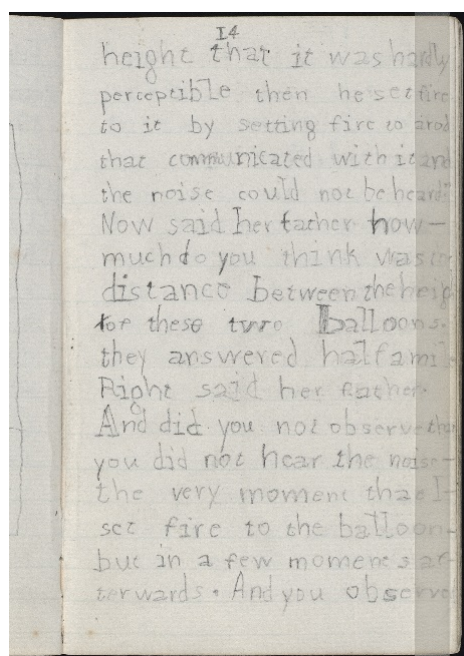 14
height that it was hardly
perceptible then he set fire
to it by setting fire to a rod
that communicated with it and
the noise could not be heard.
Now said her father how—
much do you think was the
distance between the heigh
tof these two Balloons.
they answered half a mile
Right said her father.
And did you not observe that
you did not hear the noise—
the very moment that I—
set fire to the balloon—
but in a few moments af-
terwards. And you observe